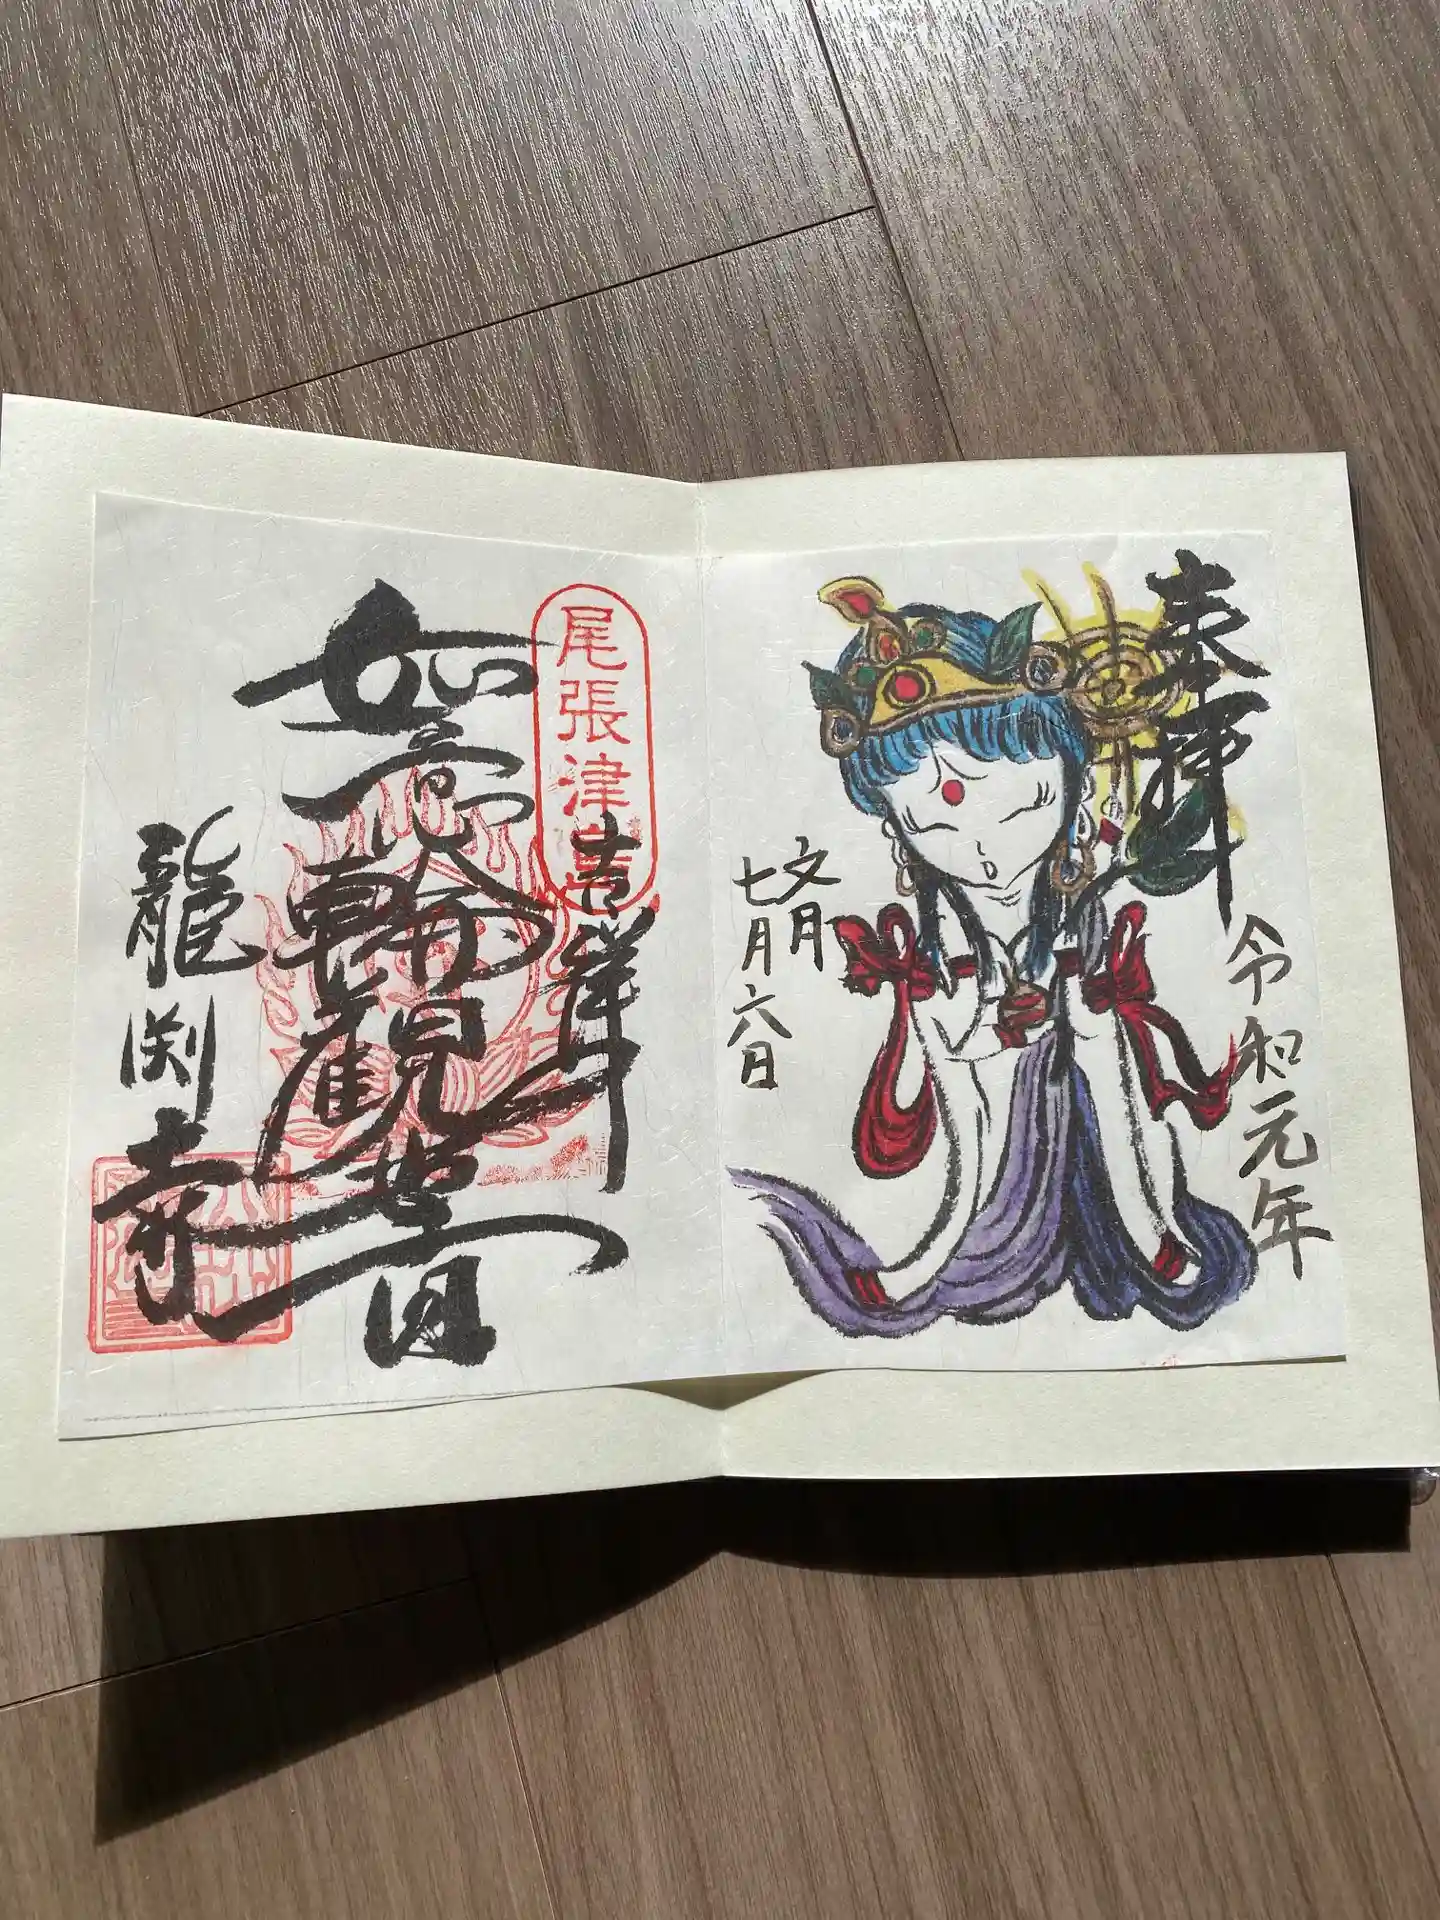 奉拝
令和元年
文月
七月六日
尾張津島
吉祥
如意輪観世音
龍渕寺